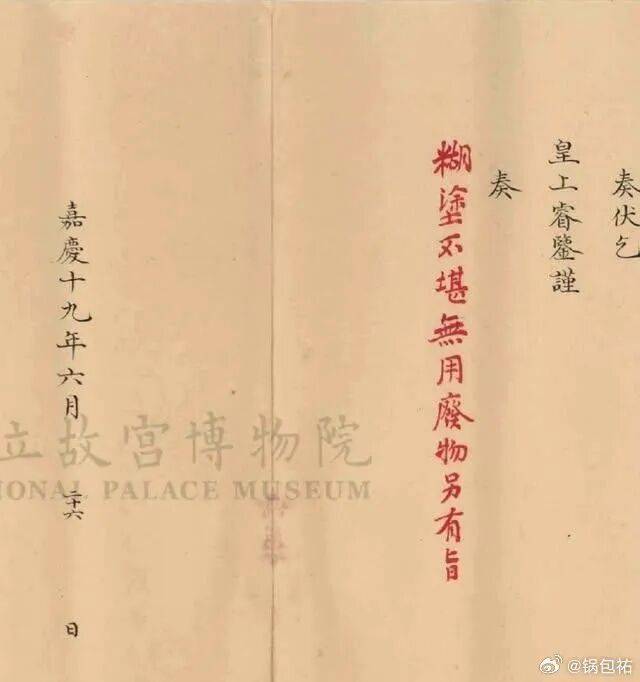 奏伏乞
皇上睿鑒謹
奏
糊塗不堪無用廢物另有旨
嘉慶十九年六月二十六日
立故宮博物院
IONAL PALACE MUSEUM
@锅包祐